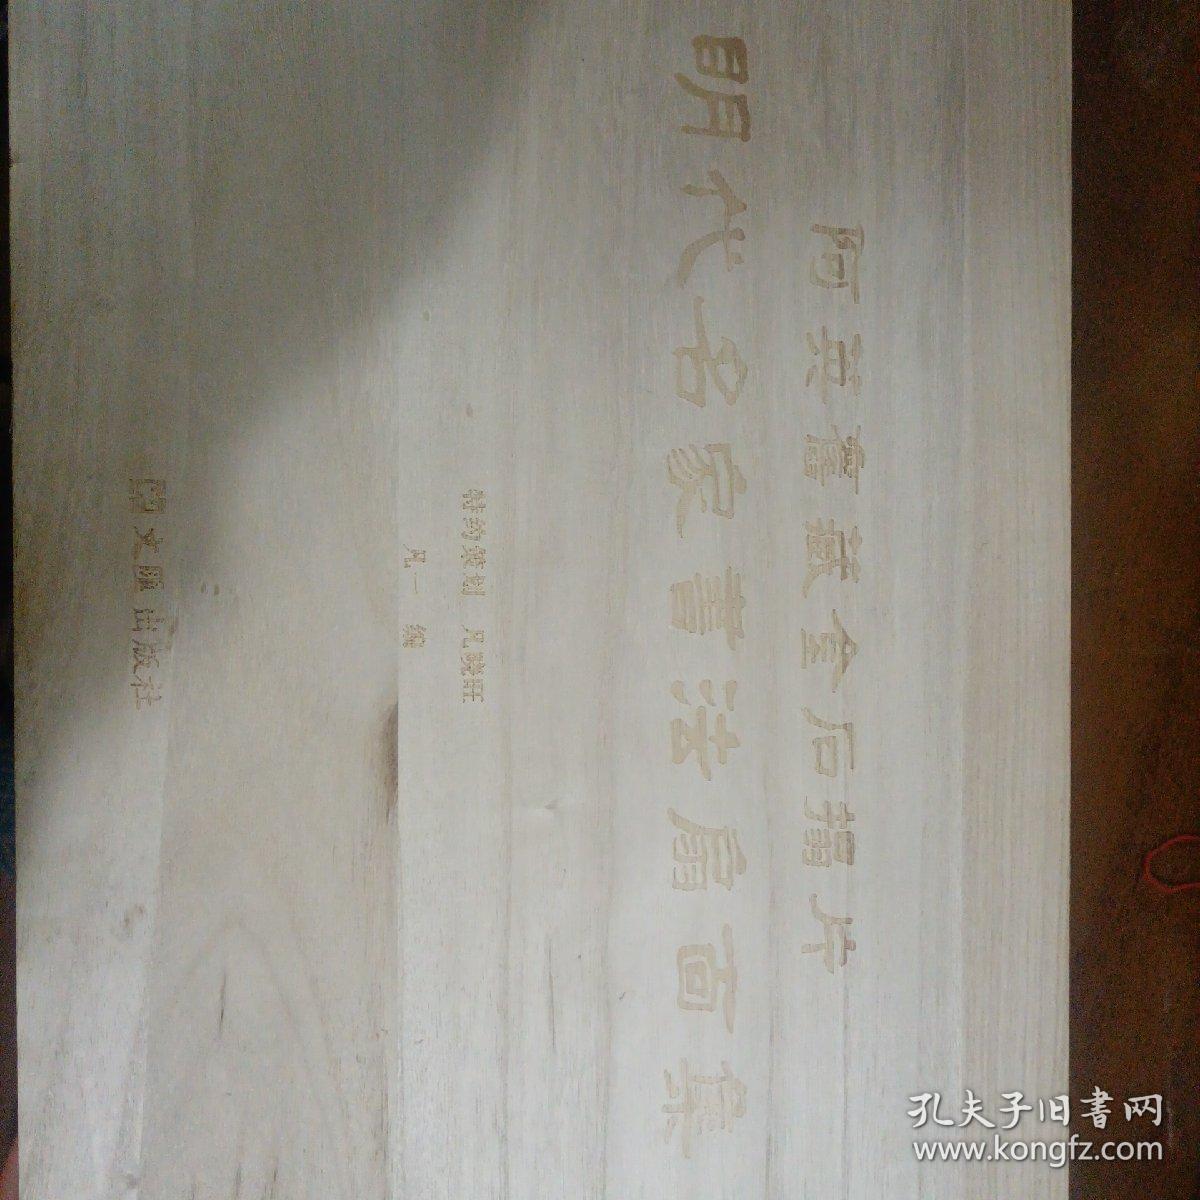 阿英舊藏金石搨片
明代名家書法扇面集
特约策划 凡晓旺
凡一 编
文匯出版社
孔夫子旧書网
www.kongfz.com